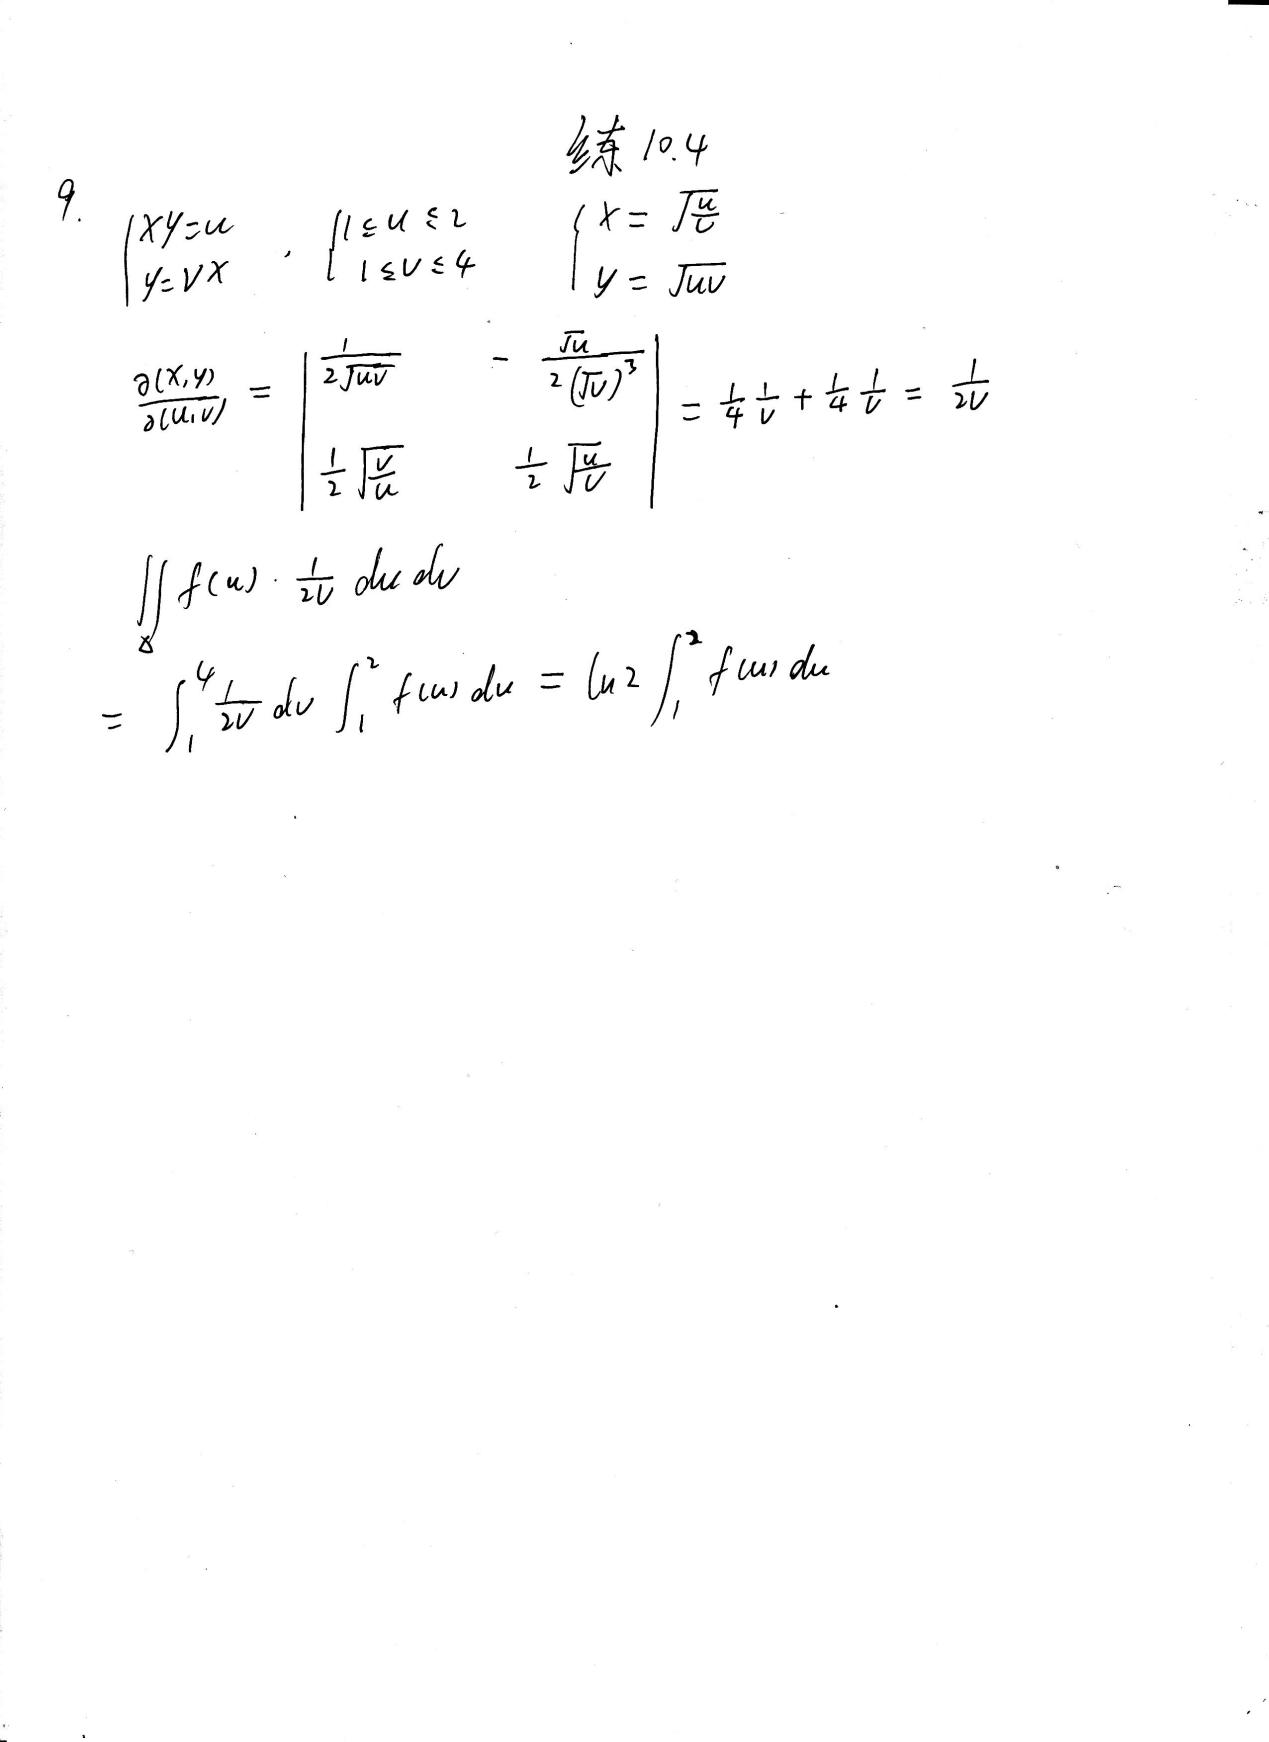 练 10.4
9. { xy=u y=vx , { 1≤u≤2 1≤v≤4 { x = √(u/v) y = √(uv)
∂(x,y)/∂(u,v) = | 1/(2√(uv)) - √u/(2(√v)³) ; 1/2 √(v/u) 1/2 √(u/v) | = 1/4 1/v + 1/4 1/v = 1/(2v)
∬ f(u) · 1/(2v) du dv
= ∫₁⁴ 1/(2v) dv ∫₁² f(u) du = ln 2 ∫₁² f(u) du